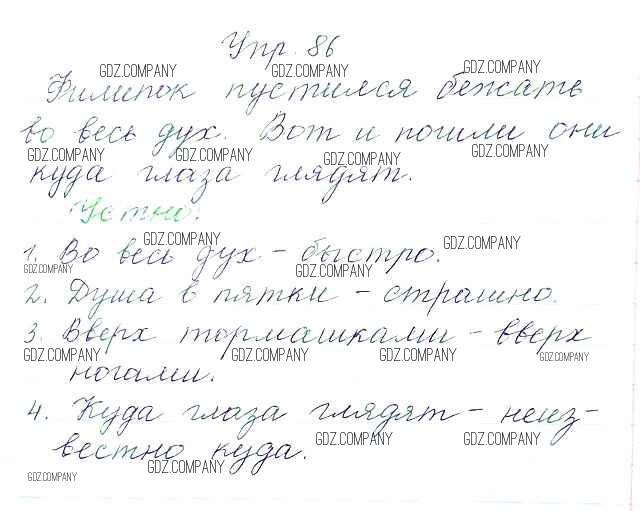 Упр. 86
GDZ.COMPANY GDZ.COMPANY GDZ.COMPANY
Филипок пустился бежать
во весь дух. Вот и пошли они
GDZ.COMPANY GDZ.COMPANY GDZ.COMPANY GDZ.COMPANY
куда глаза глядят.
Устно:
GDZ.COMPANY GDZ.COMPANY
1. Во весь дух - быстро.
GDZ.COMPANY GDZ.COMPANY
2. Душа в пятки - страшно.
3. Вверх тормашками - вверх
GDZ.COMPANY GDZ.COMPANY GDZ.COMPANY GDZ.COMPANY
ногами.
4. Куда глаза глядят - неиз-
GDZ.COMPANY GDZ.COMPANY
вестно куда.
GDZ.COMPANY
GDZ.COMPANY